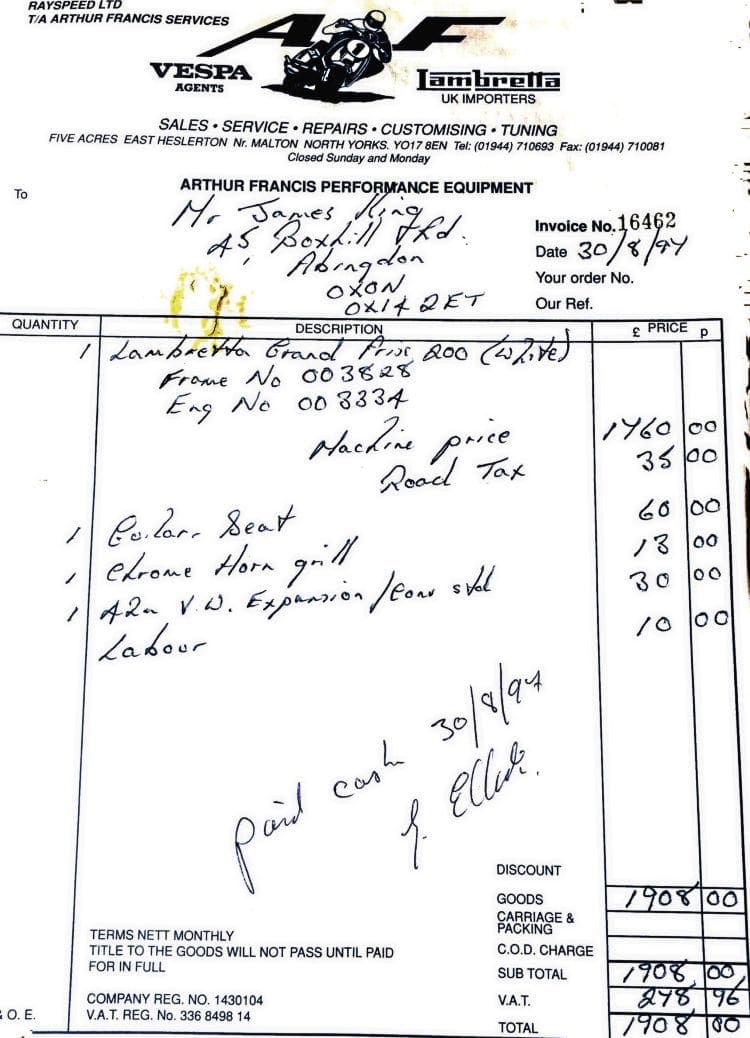 RAYSPEED LTD
T/A ARTHUR FRANCIS SERVICES
AF
1
VESPA
AGENTS
Lambretta
UK IMPORTERS
SALES • SERVICE • REPAIRS • CUSTOMISING • TUNING
FIVE ACRES EAST HESLERTON Nr. MALTON NORTH YORKS. YO17 8EN Tel: (01944) 710693 Fax: (01944) 710081
Closed Sunday and Monday
ARTHUR FRANCIS PERFORMANCE EQUIPMENT
To
Mr James King
45, Boxhill Rd.
Abingdon
OXON
OX14 2ET
Invoice No. 16462
Date 30/8/94
Your order No.
Our Ref.
QUANTITY DESCRIPTION £ PRICE p
1 Lambretta Grand Prix 200 (White)
Frame No 003828
Eng No 003334
Machine price 1760 00
Road Tax 35 00
1 Seat 60 00
1 Chrome Horn grill 13 00
1 V.W. Expansion / std 30 00
Labour 10 00
paid cash 30/8/94
DISCOUNT
GOODS 1908 00
CARRIAGE &
PACKING
C.O.D. CHARGE
SUB TOTAL 1908 00
V.A.T. 278 96
TOTAL 1908 00
TERMS NETT MONTHLY
TITLE TO THE GOODS WILL NOT PASS UNTIL PAID
FOR IN FULL
COMPANY REG. NO. 1430104
V.A.T. REG. No. 336 8498 14
& O. E.